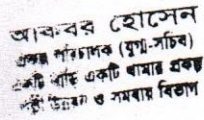 আকবর হোসেন
প্রকল্প পরিচালক (যুগ্ম-সচিব)
একটি বাড়ি একটি খামার প্রকল্প
পল্লী উন্নয়ন ও সমবায় বিভাগ